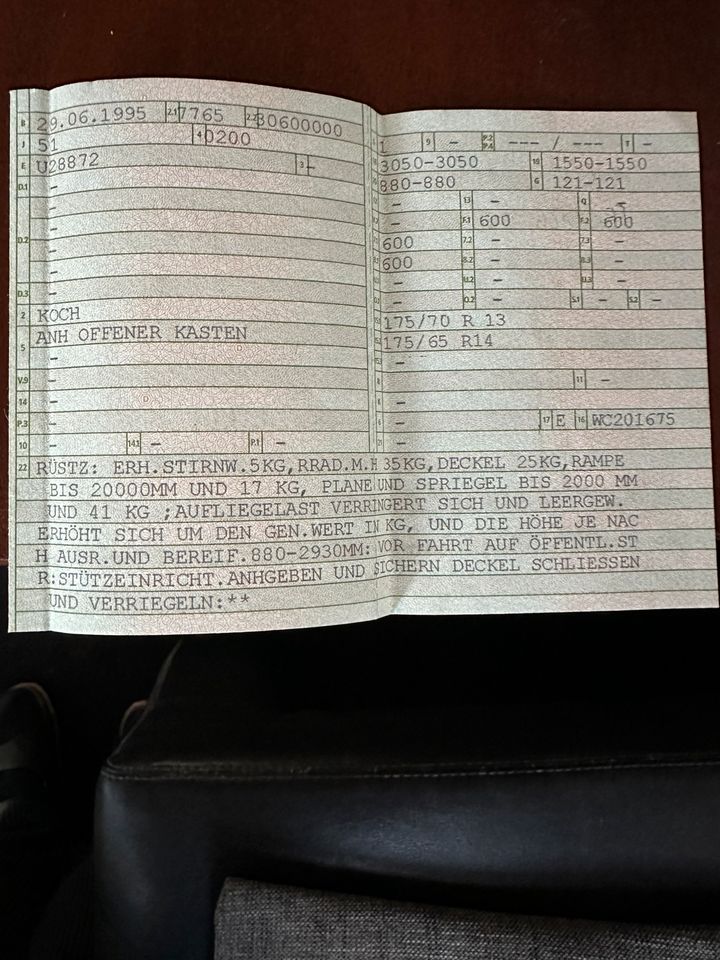 B 29.06.1995 2.1 7765 2.2 30600000
J 51 4 0200
E U28872 3 -
D.1 -
-
-
D.2 -
-
-
D.3 -
2 KOCH
5 ANH OFFENER KASTEN
-
V.9 -
14 -
P.3 -
10 - 14.1 - P.1 -
1 9 - P.2 P.4 --- / --- T -
3050-3050 19 1550-1550
880-880 G 121-121
- 13 - Q -
- F.1 600 F.2 600
600 7.2 - 7.3 -
600 8.2 - 8.3 -
- U.2 - U.3 -
- O.2 - S.1 - S.2 -
175/70 R 13
175/65 R14
-
- 11 -
-
- 17 E 16 WC201675
-
22 RÜSTZ: ERH.STIRNW.5KG,RRAD.M.H 35KG,DECKEL 25KG,RAMPE
BIS 20000MM UND 17 KG, PLANE UND SPRIEGEL BIS 2000 MM
UND 41 KG ;AUFLIEGELAST VERRINGERT SICH UND LEERGEW.
ERHÖHT SICH UM DEN GEN.WERT IN KG, UND DIE HÖHE JE NAC
H AUSR.UND BEREIF.880-2930MM: VOR FAHRT AUF ÖFFENTL.ST
R:STÜTZEINRICHT.ANHGEBEN UND SICHERN DECKEL SCHLIESSEN
UND VERRIEGELN:**